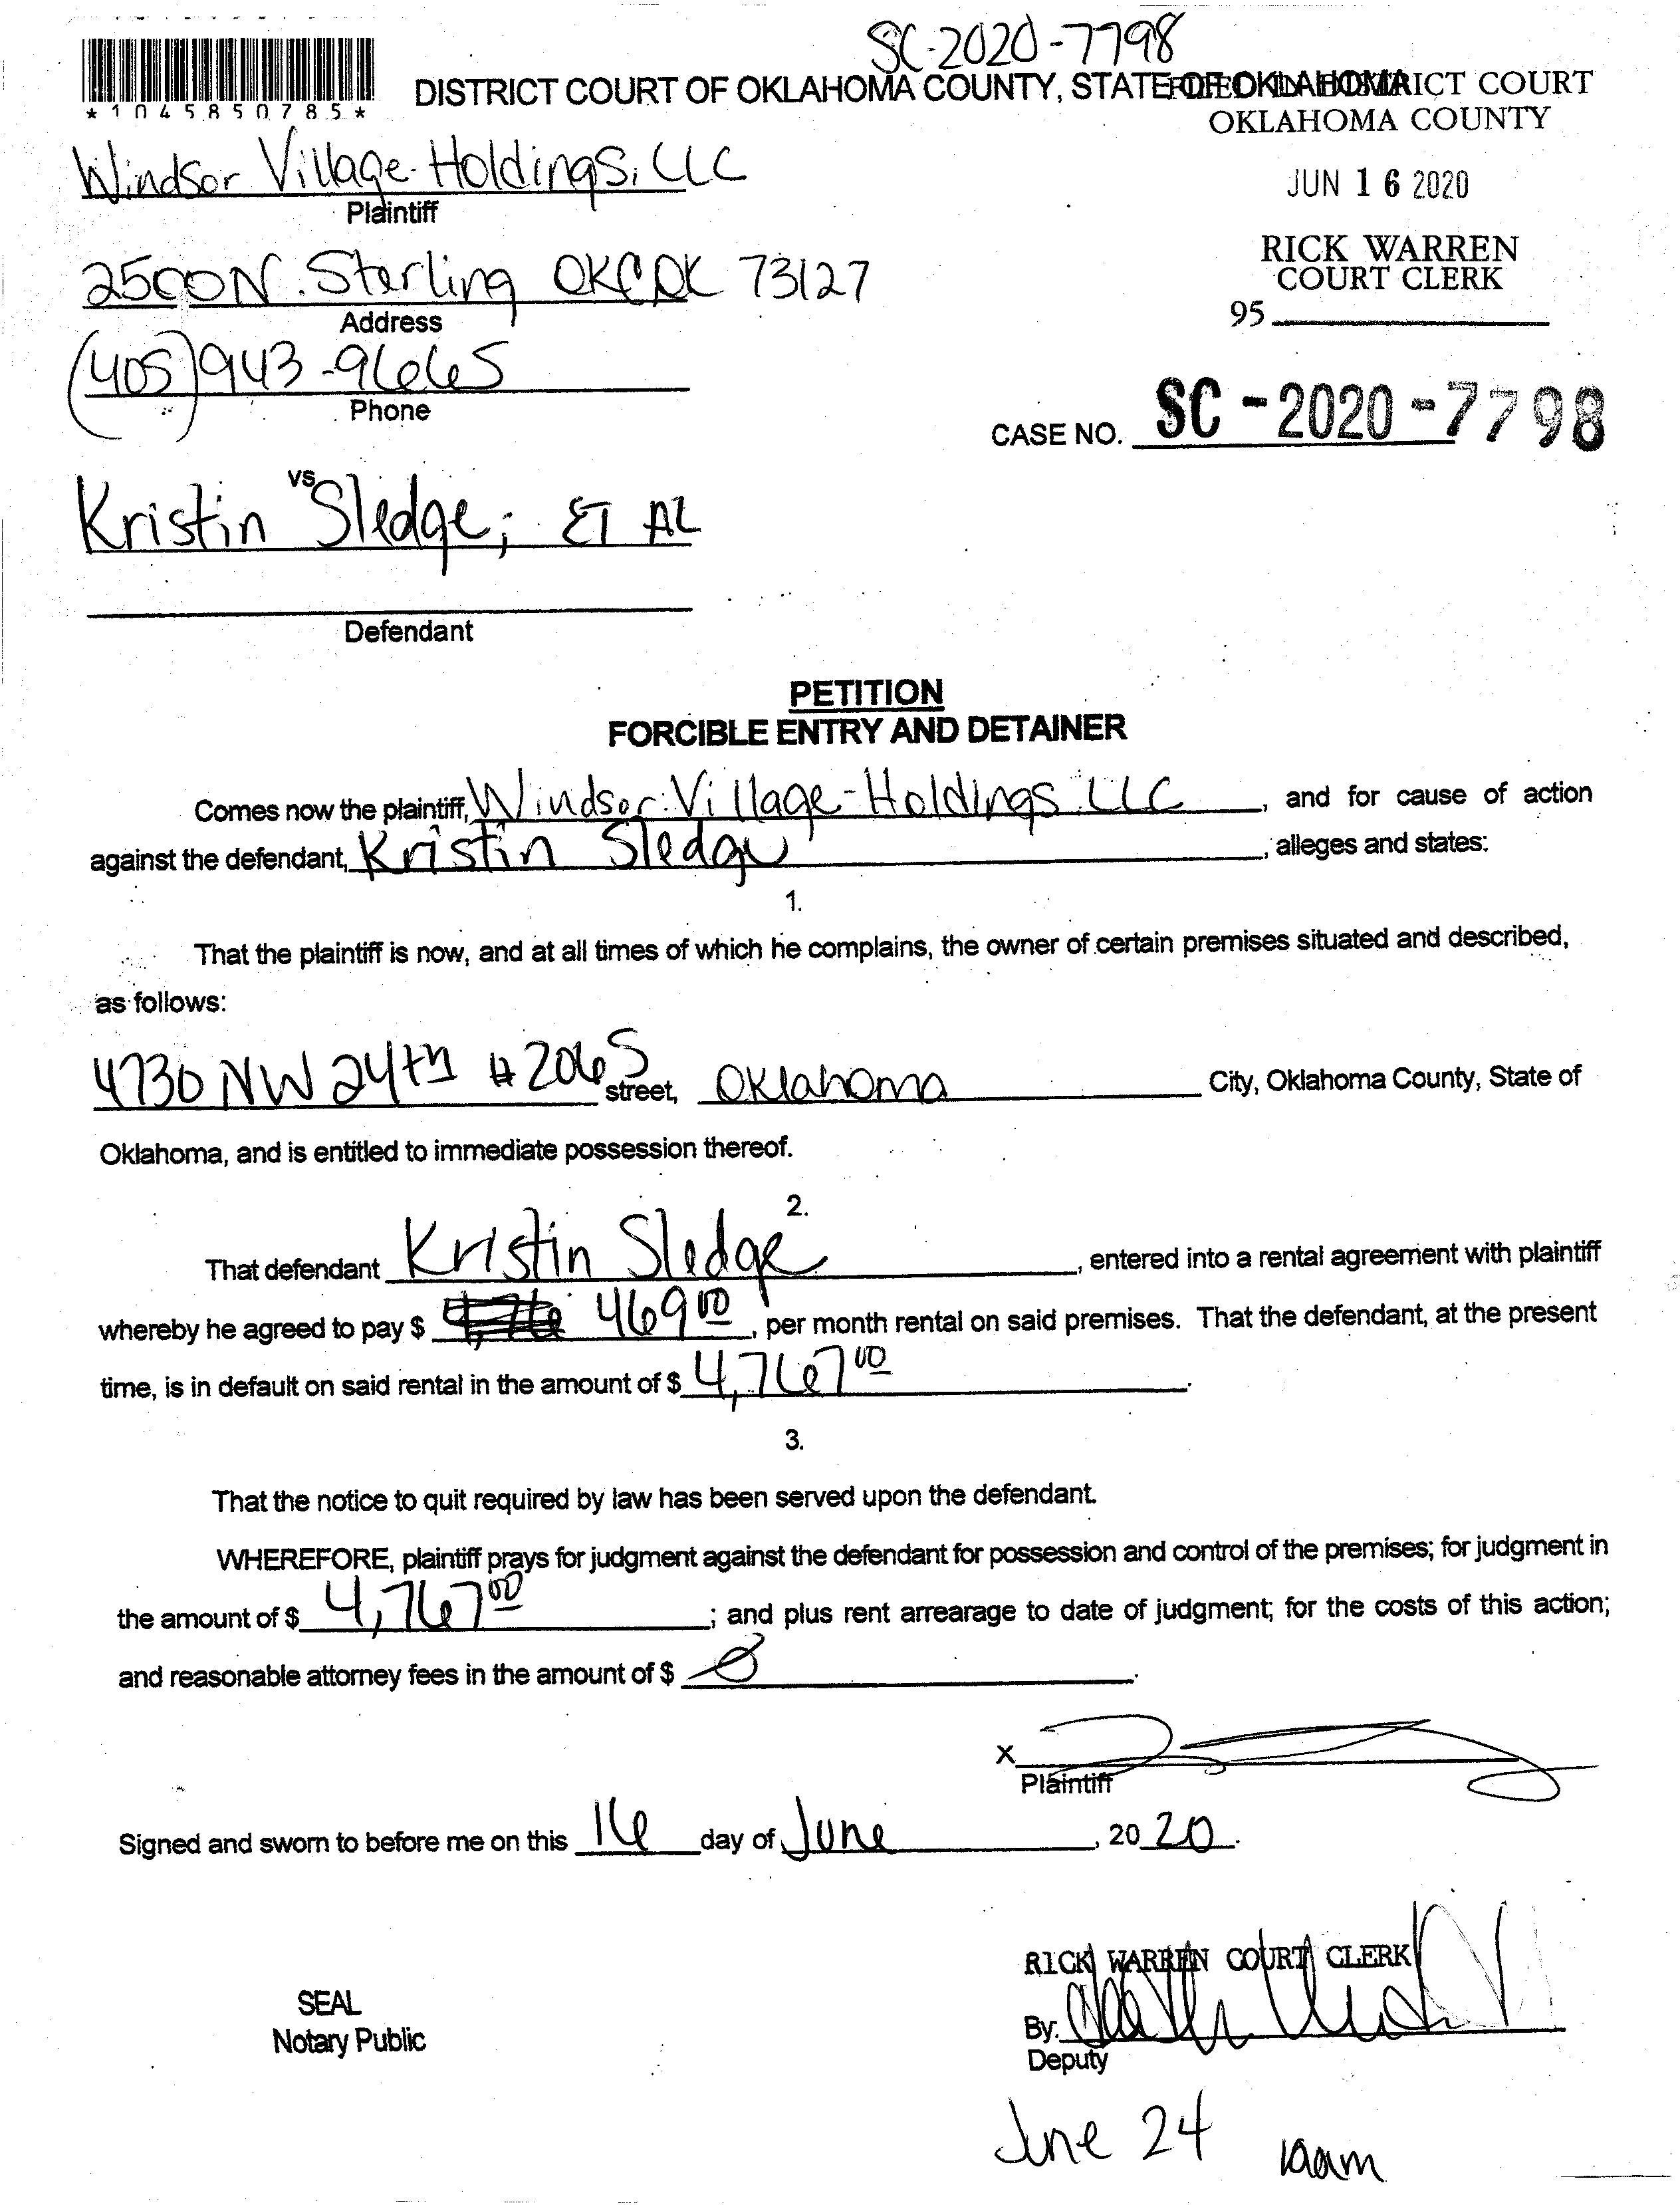 SC-2020-7798
*1045850785*
DISTRICT COURT OF OKLAHOMA COUNTY, STATE OF OKLAHOMA
FILED IN DISTRICT COURT
OKLAHOMA COUNTY
Windsor Village-Holdings, LLC
Plaintiff
JUN 16 2020
2500 N. Sterling OKC OK 73127
Address
RICK WARREN
COURT CLERK
95
(405) 943-9665
Phone
CASE NO. SC-2020-7798
vs
Kristin Sledge; ET AL
Defendant
PETITION
FORCIBLE ENTRY AND DETAINER
Comes now the plaintiff, Windsor Village-Holdings LLC, and for cause of action
against the defendant, Kristin Sledge, alleges and states:
1.
That the plaintiff is now, and at all times of which he complains, the owner of certain premises situated and described,
as follows:
4730 NW 24th #206S street, Oklahoma City, Oklahoma County, State of
Oklahoma, and is entitled to immediate possession thereof.
2.
That defendant Kristin Sledge, entered into a rental agreement with plaintiff
whereby he agreed to pay $ 469 00, per month rental on said premises. That the defendant, at the present
time, is in default on said rental in the amount of $ 4,767 00.
3.
That the notice to quit required by law has been served upon the defendant.
WHEREFORE, plaintiff prays for judgment against the defendant for possession and control of the premises; for judgment in
the amount of $ 4,767 00; and plus rent arrearage to date of judgment; for the costs of this action;
and reasonable attorney fees in the amount of $ 0.
X
Plaintiff
Signed and sworn to before me on this 16 day of June, 2020.
RICK WARREN COURT CLERK
SEAL
Notary Public
By:
Deputy
June 24